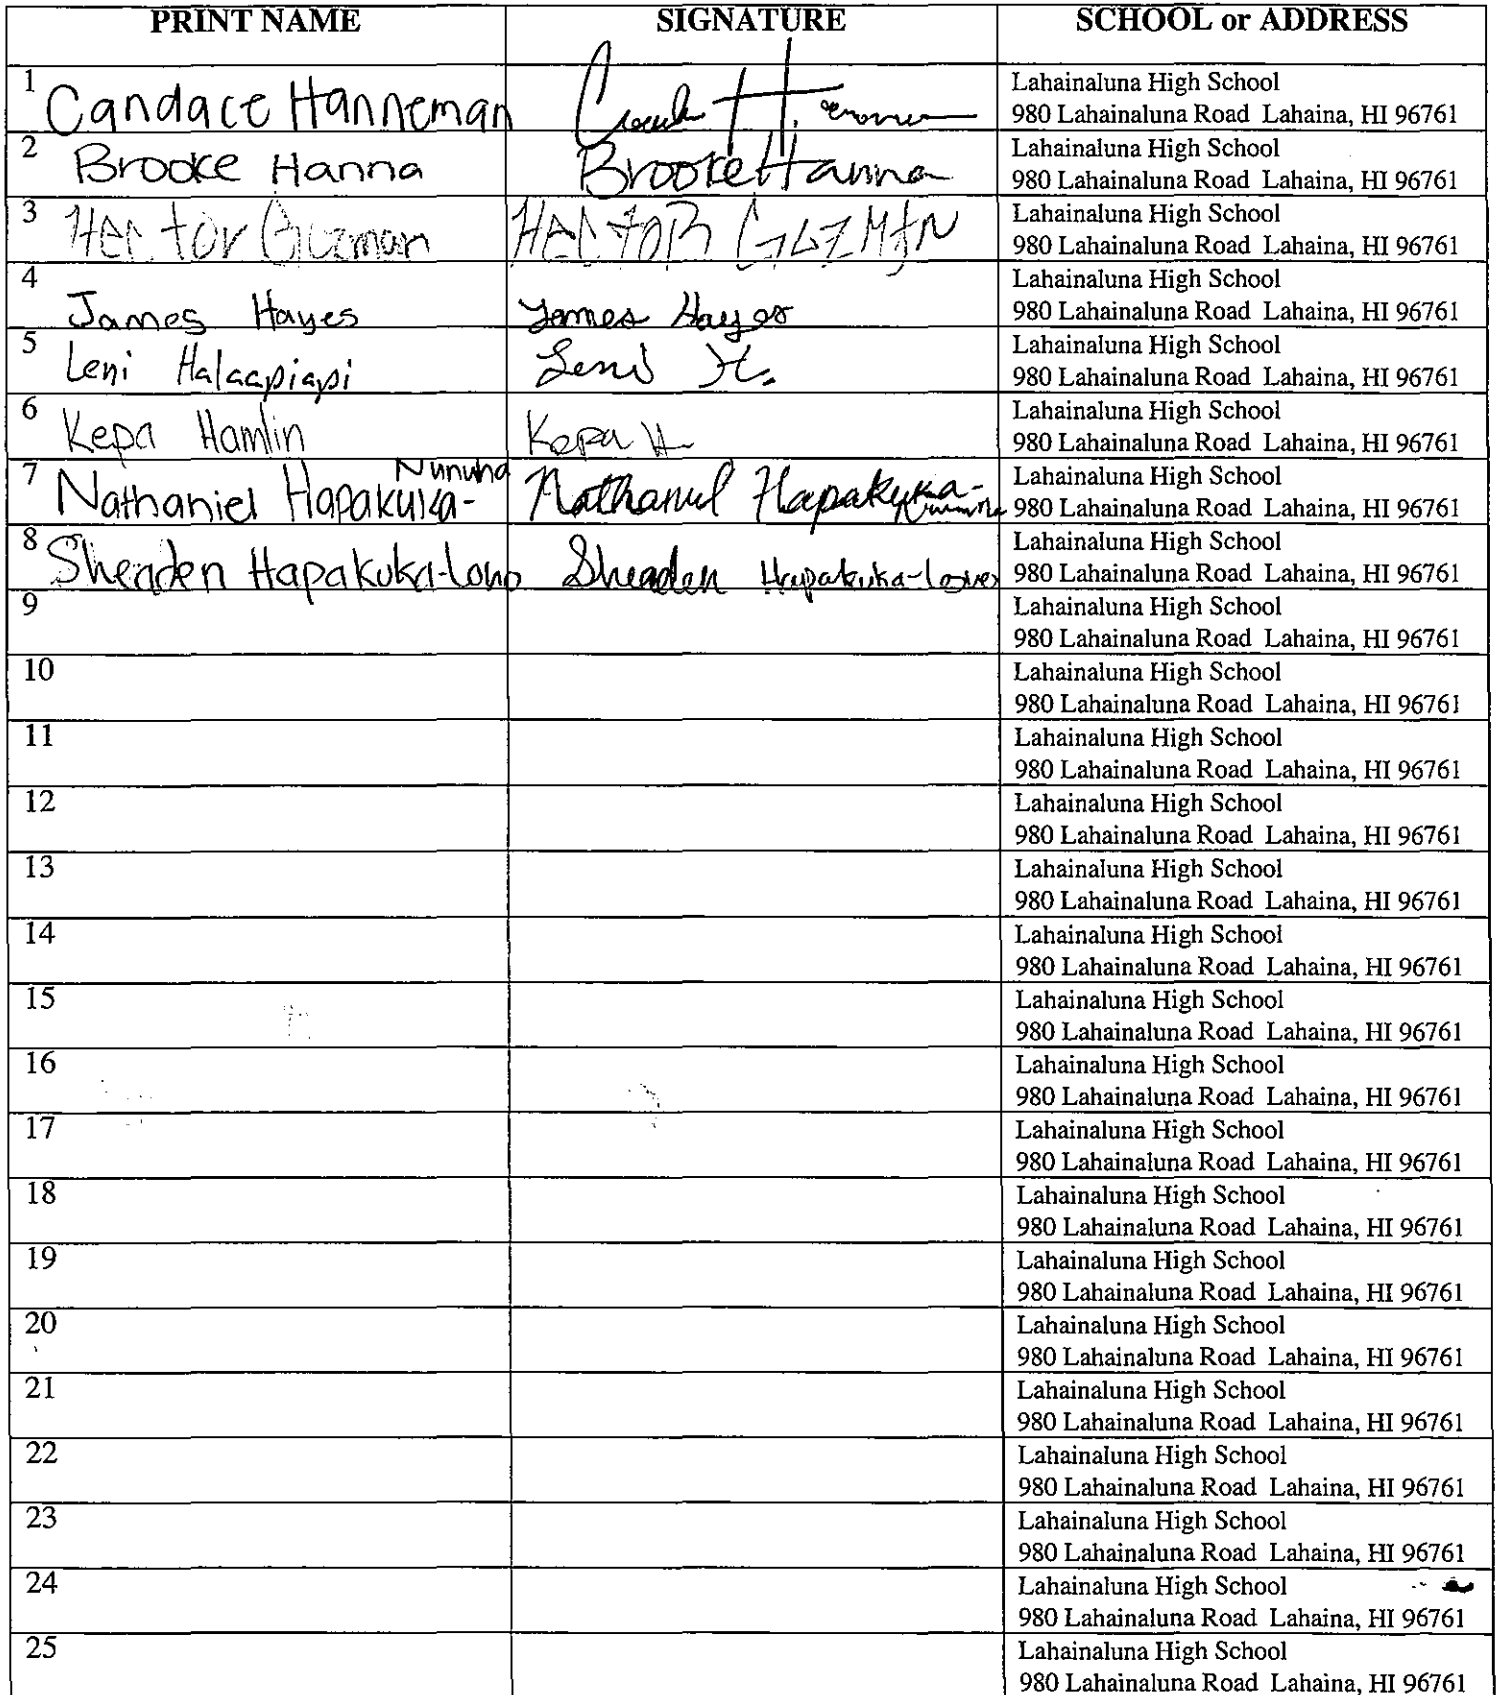 PRINT NAME SIGNATURE SCHOOL or ADDRESS
1 Candace Hanneman Lahainaluna High School
980 Lahainaluna Road Lahaina, HI 96761
2 Brooke Hanna Brooke Hanna Lahainaluna High School
980 Lahainaluna Road Lahaina, HI 96761
3 Hector Guzman HECTOR Lahainaluna High School
980 Lahainaluna Road Lahaina, HI 96761
4 James Hayes James Hayes Lahainaluna High School
980 Lahainaluna Road Lahaina, HI 96761
5 Leni Halaapiapi Leni H. Lahainaluna High School
980 Lahainaluna Road Lahaina, HI 96761
6 Kepa Hamlin Kepa H Lahainaluna High School
980 Lahainaluna Road Lahaina, HI 96761
7 Nathaniel Hapakuka- Nathaniel Hapakuka- Lahainaluna High School
980 Lahainaluna Road Lahaina, HI 96761
8 Sheaden Sheaden Lahainaluna High School
980 Lahainaluna Road Lahaina, HI 96761
9 Lahainaluna High School
980 Lahainaluna Road Lahaina, HI 96761
10 Lahainaluna High School
980 Lahainaluna Road Lahaina, HI 96761
11 Lahainaluna High School
980 Lahainaluna Road Lahaina, HI 96761
12 Lahainaluna High School
980 Lahainaluna Road Lahaina, HI 96761
13 Lahainaluna High School
980 Lahainaluna Road Lahaina, HI 96761
14 Lahainaluna High School
980 Lahainaluna Road Lahaina, HI 96761
15 Lahainaluna High School
980 Lahainaluna Road Lahaina, HI 96761
16 Lahainaluna High School
980 Lahainaluna Road Lahaina, HI 96761
17 Lahainaluna High School
980 Lahainaluna Road Lahaina, HI 96761
18 Lahainaluna High School
980 Lahainaluna Road Lahaina, HI 96761
19 Lahainaluna High School
980 Lahainaluna Road Lahaina, HI 96761
20 Lahainaluna High School
980 Lahainaluna Road Lahaina, HI 96761
21 Lahainaluna High School
980 Lahainaluna Road Lahaina, HI 96761
22 Lahainaluna High School
980 Lahainaluna Road Lahaina, HI 96761
23 Lahainaluna High School
980 Lahainaluna Road Lahaina, HI 96761
24 Lahainaluna High School
980 Lahainaluna Road Lahaina, HI 96761
25 Lahainaluna High School
980 Lahainaluna Road Lahaina, HI 96761